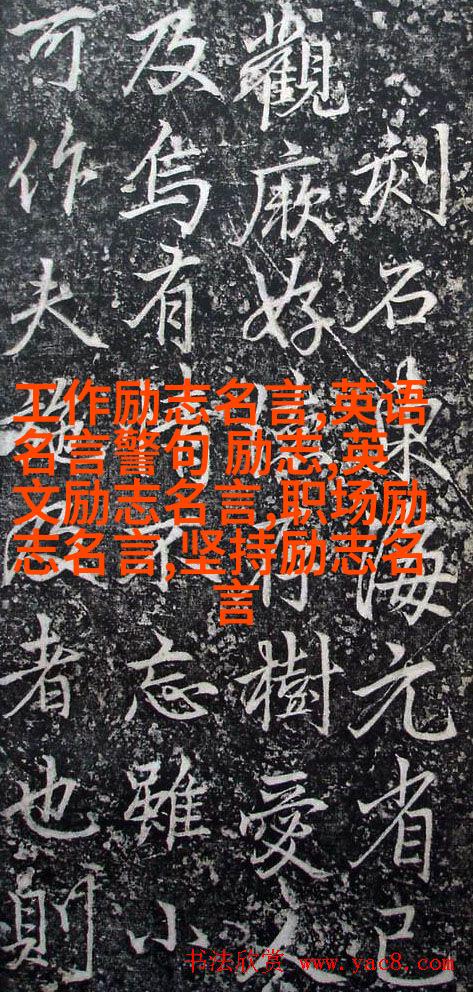 刻石海元省已
觀厥好樹愛
及焉有不忘雖小
可作夫者也則
工作励志名言,英语
名言警句 励志,英
文励志名言,职场励
志名言,坚持励志名
言
书法欣赏 www.yac8.com